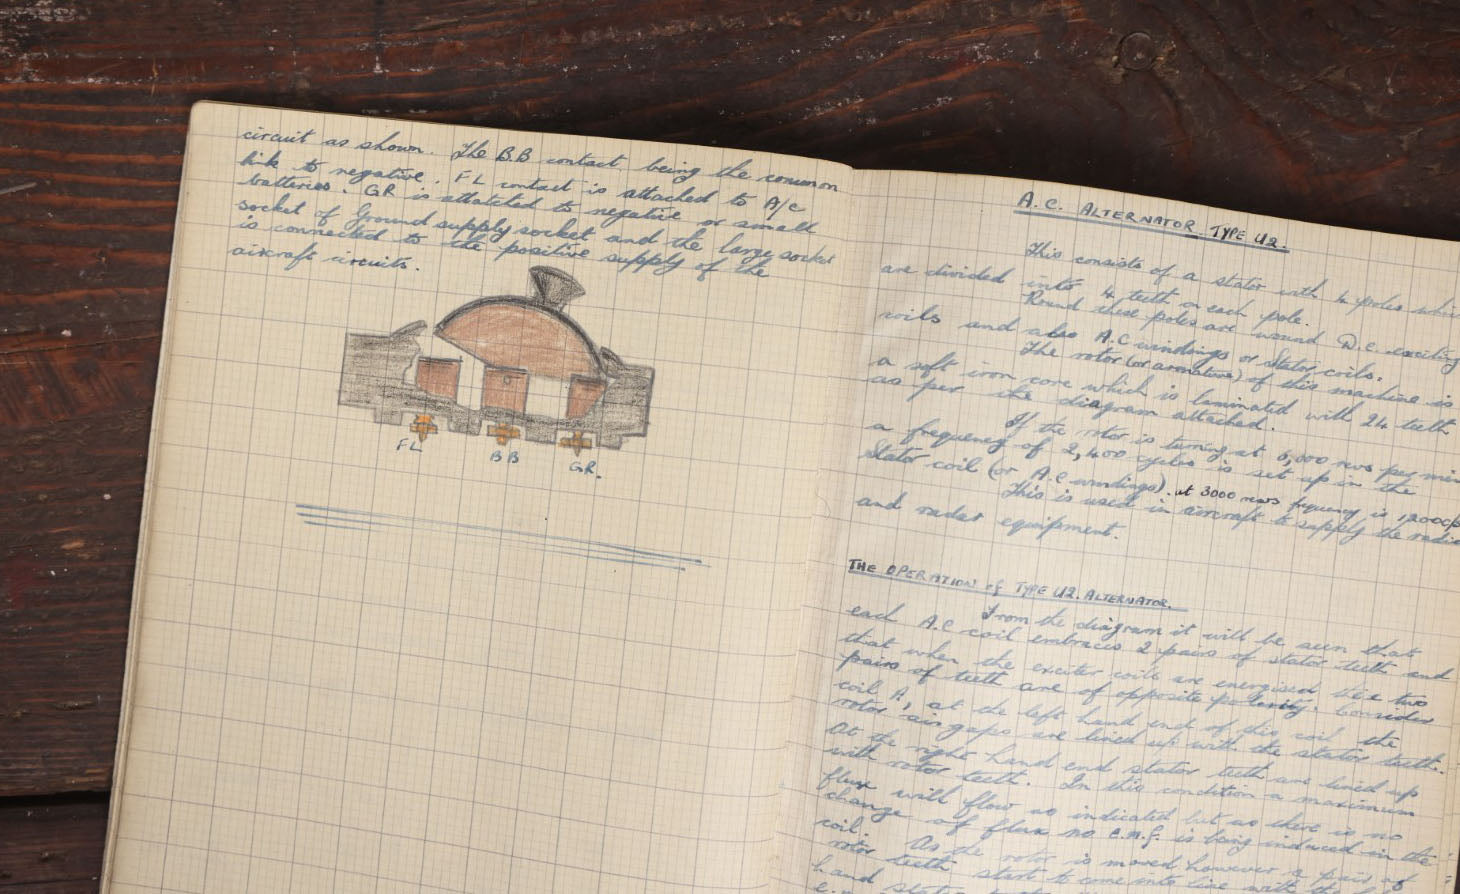 circuit as shown. The B.B contact being the common
link to negative. FL contact is attached to A/C
batteries. GR is attatched to negative or small
socket of Ground supply socket and the large socket
is connected to the positive supply of the
aircraft circuits.
FL
BB
GR.
A.C. ALTERNATOR TYPE U2.
This consists of a stator with 4 poles which
are divided into 4 teeth on each pole.
Round these poles are wound D.C. exciting
coils and also A.C windings or Stator coils.
The rotor (or armature) of this machine is
a soft iron core which is laminated with 24 teeth
as per the diagram attached.
If the rotor is turning at 6,000 revs per min
a frequency of 2,400 cycles is set up in the
Stator coil (or A.C windings). at 3000 revs frequency is 1,200
This is used in aircraft to supply the radio
and radar equipment.
THE OPERATION of TYPE U2. ALTERNATOR.
From the diagram it will be seen that
each A.C coil embraces 2 pairs of stator teeth and
that when the exciter coils are energised the two
pairs of teeth are of opposite polarity. Consider
coil A, at the left hand end of this coil the
rotor airgaps are lined up with the stator teeth.
At the right hand end stator teeth are lined up
with rotor teeth. In this condition a maximum
flux will flow as indicated but as there is no
change of flux no e.m.f. is being induced in the
coil. As the rotor is moved however a pair of
rotor teeth start to come into line with
hand stator